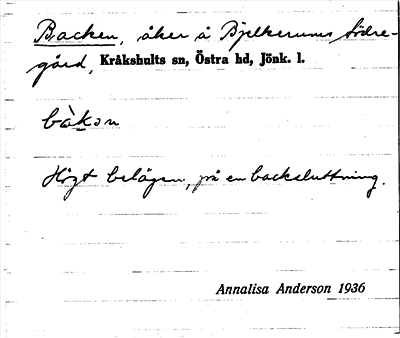 Backen, åker å Bjelkerums Södre-
gård, Kråkshults sn, Östra hd, Jönk. l.
bàkən
Högt belägen, på en backsluttning.
Annalisa Anderson 1936